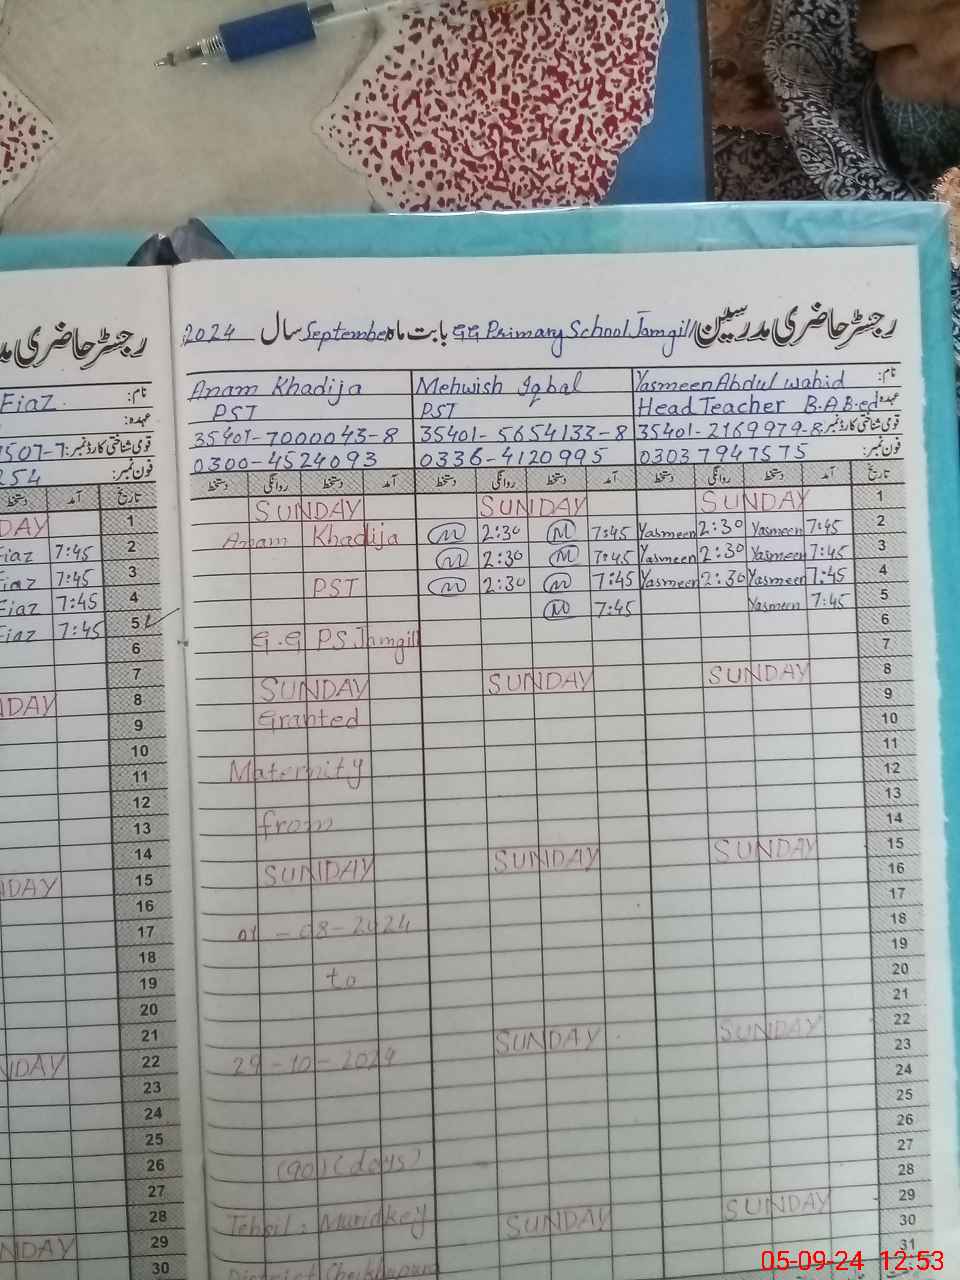 رجسٹر حاضری مدرسین G.G Primary School Jamgil بابت ماہ September سال 2024
رجسٹر حاضری
نام: Yasmeen Abdul wahid Mehwish Iqbal Anam Khadija
نام: Fiaz
عہدہ Head Teacher B.A B.ed PST PST
عہدہ:
قومی شناختی کارڈ نمبر: 35401-2169979-8 35401-5654133-8 35401-7000043-8
قومی شناختی کارڈ نمبر: 507-7
فون نمبر: 03037947575 0336-4120995 0300-4524093
فون نمبر: 254
آمد دستخط روانگی دستخط آمد دستخط روانگی دستخط آمد دستخط روانگی دستخط
تاریخ آمد دستخط
1 SUNDAY SUNDAY SUNDAY
2 7:45 Yasmeen 2:30 Yasmeen 7:45 M 2:30 M Anam Khadija
3 7:45 Yasmeen 2:30 Yasmeen 7:45 M 2:30 M
4 7:45 Yasmeen 2:30 Yasmeen 7:45 M 2:30 M PST
5 7:45 Yasmeen 7:45 M
6 G.G PS Jamgill
7
8 SUNDAY SUNDAY SUNDAY
9 Granted
10
11 Maternity
12
13 from
14
15 SUNDAY SUNDAY SUNDAY
16
17 01-08-2024
18
19 to
20
21
22 SUNDAY SUNDAY
23 29-10-2024
24
25
26
27 (90)(days)
28
29 SUNDAY SUNDAY Tehsil: Muridkey
30
31 District Cheikhupura
1 DAY
2 7:45 Fiaz
3 7:45 Fiaz
4 7:45 Fiaz
5 7:45 Fiaz
6
7
8 DAY
9
10
11
12
13
14
15 DAY
16
17
18
19
20
21
22 NDAY
23
24
25
26
27
28
29 NDAY
30
05-09-24 12:53